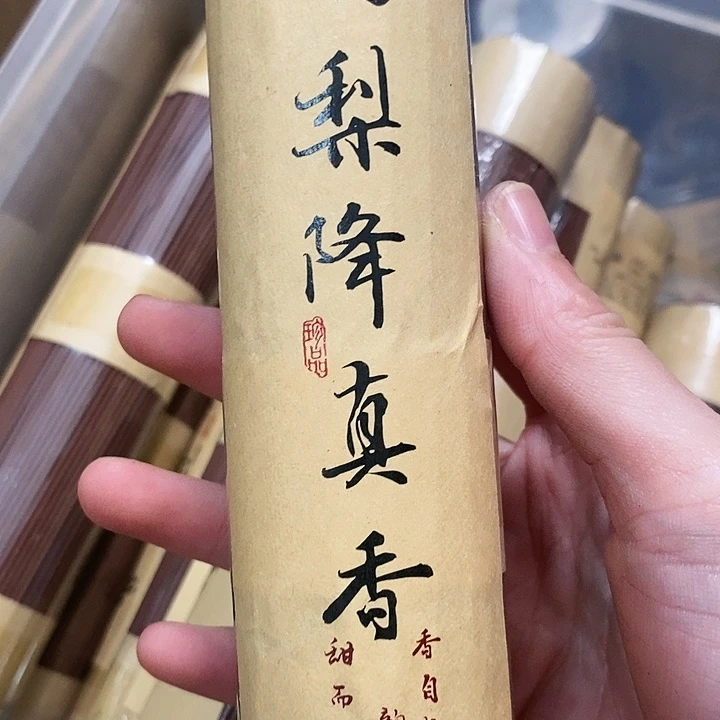 梨降真香
珍品
香自
甜而